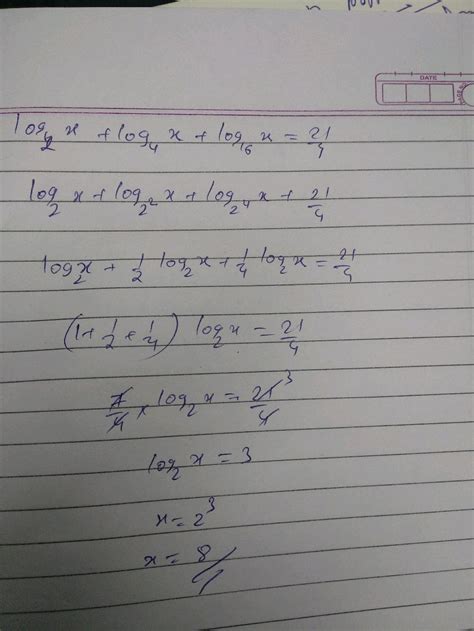 DATE
log₂ x + log₄ x + log₁₆ x = 21/4
log₂ x + log₂² x + log₂⁴ x + 21/4
log₂ x + 1/2 log₂ x + 1/4 log₂ x = 21/4
(1 + 1/2 + 1/4) log₂ x = 21/4
7/4 × log₂ x = 21/4 3
log₂ x = 3
x = 2³
x = 8